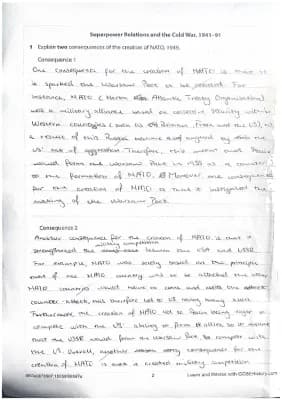 Superpower Relations and the Cold War, 1941-91
1 Explain two consequences of the creation of NATO, 1949.
Consequence 1
One consequence for the creation of NATO is that it
is sparked the Warsaw Pact to be
instance, NATO (North Atlantic Treaty Organisation)
was a military alliance based on collective security within
Western countries (such as GB, France and the US),
a result of this Russia by this
US act of aggression. Therefore, this meant that Russia
would form the Warsaw Pact in 1955 as a counter
to the formation of NATO. Moreover, one consequence
for the creation of NATO is that it instigated the
making of the Warsaw Pact.
Consequence 2
Another consequence for the creation of NATO is that it
strengthened the military competition between the USA and USSR.
For example, NATO was based on the principle
that if one NATO country was to be attacked the other
NATO countries would have to come and
counter-attack, this therefore led to US having many
Furthermore, the creation of NATO led to Russia being eager to
compete with the US allies, so it
that the USSR would form the Warsaw Pact, to compete with
the US. Overall, another consequence for the
creation of NATO is that it created military competition
2
Learn and Revise with GCSEHistory.com